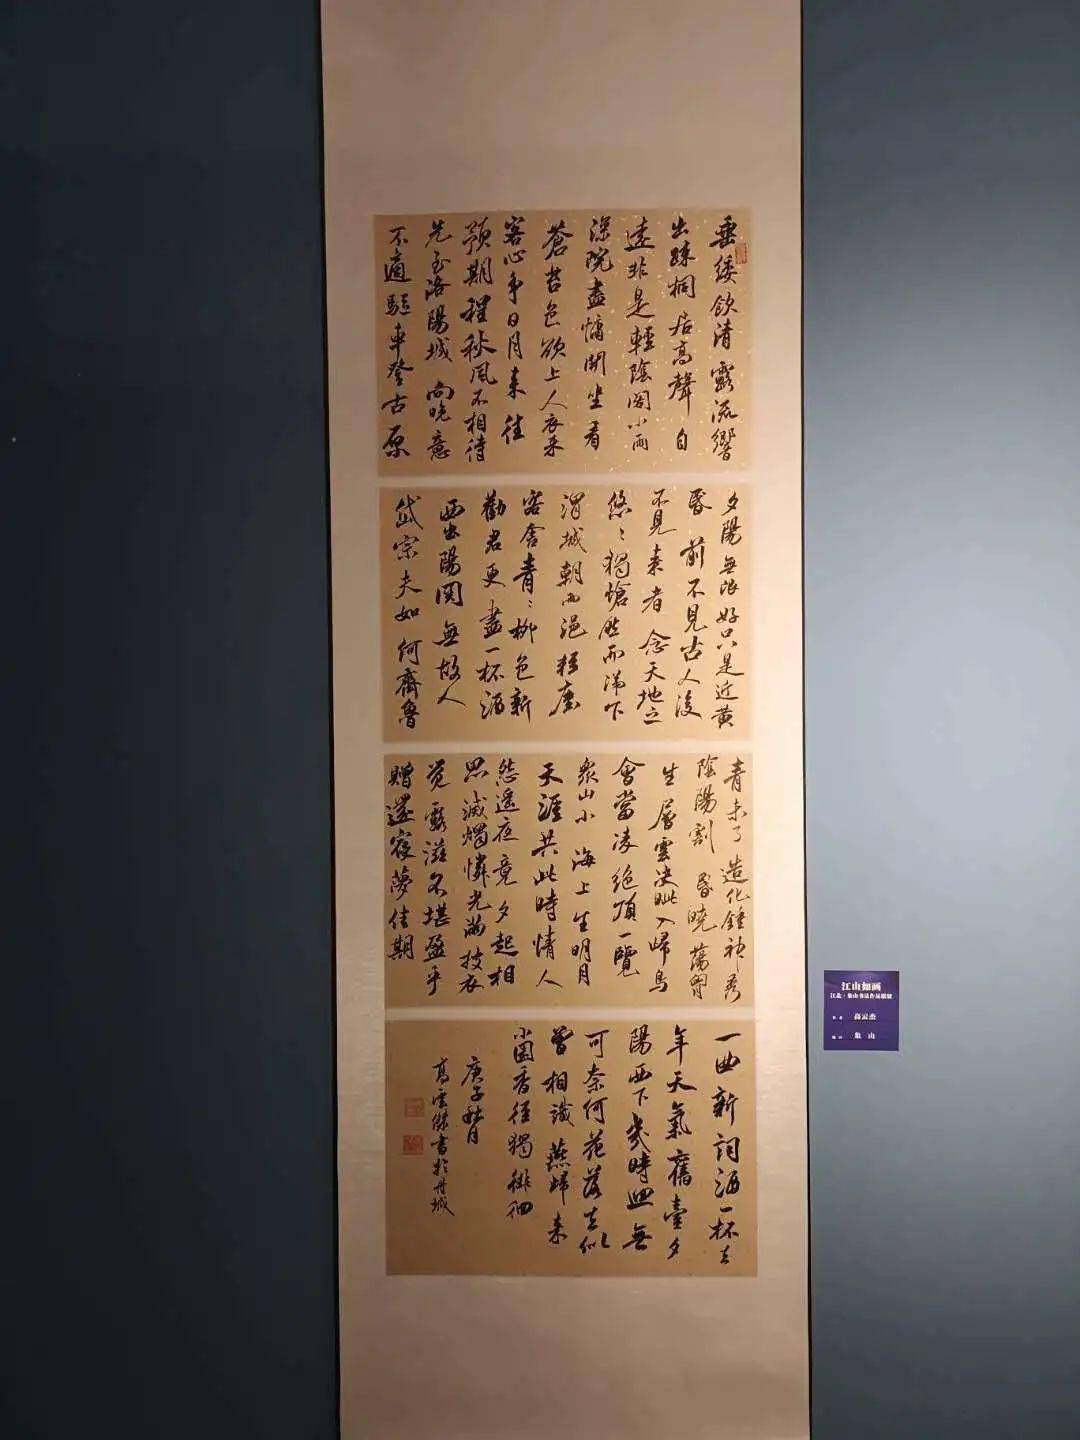 垂緌飲清露流響
出疎桐居高聲自
遠非是輕陰閣小雨
深院晝慵開坐看
蒼苔色欲上人衣来
客心争日月来往
預期程秋風不相待
先至洛陽城 向晚意
不適驅車登古原
夕陽無限好只是近黄
昏 前不見古人後
不見来者念天地之
悠〻獨愴然而涕下
渭城朝雨浥轻塵
客舍青〻柳色新
勸君更盡一杯酒
西出陽関無故人
岱宗夫如何齊魯
青未了造化鍾神秀
陰陽割 昏曉蕩胷
生層雲決眦入歸鳥
會當凌絶頂一覽
衆山小 海上生明月
天涯共此時情人
怨遥夜竟夕起相
思滅燭憐光滿披衣
覺露滋不堪盈手
贈還寝夢佳期
一曲新詞酒一杯去
年天氣舊臺夕
陽西下幾時迴無
可奈何花落去似
曾相識燕歸来
小園香徑獨徘徊
庚子秋月
高雲傑書於丹城
江山如画
江北·象山书法作品联展
高云杰
象 山